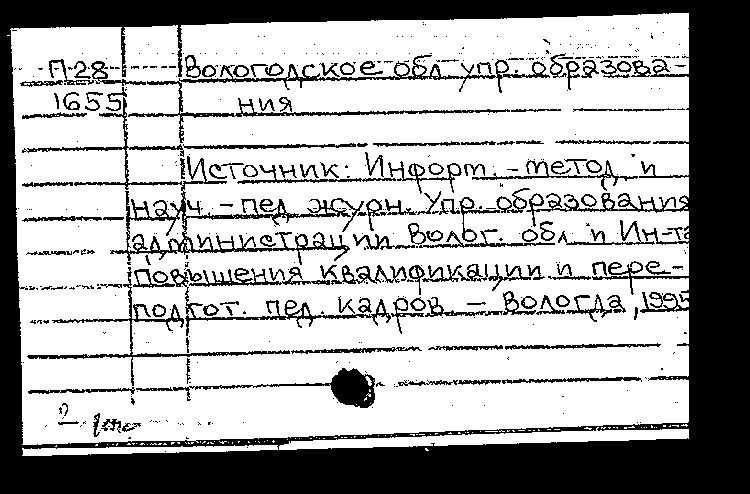 П-28 Вологодское обл упр. образова-
1655 ния
Источник: Информ. - метод и
науч. - пед журн. Упр. образования
администрации Волог. обл и Ин-та
повышения квалификации и пере-
подгот. пед. кадров. - Вологда, 1995